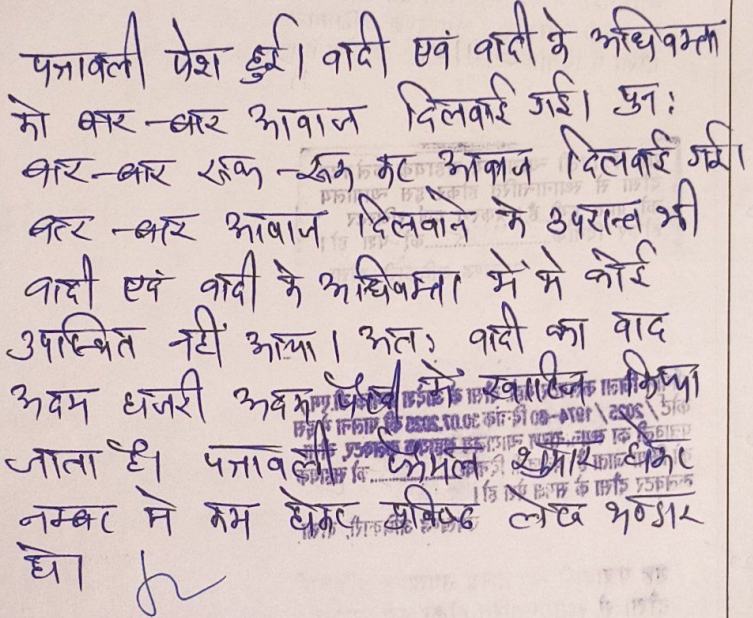 पत्रावली पेश हुई। वादी एवं वादी के अधिवक्ता
को बार-बार आवाज दिलवाई गई। पुनः
बार-बार रूक-रूक कर आवाज दिलवाई गई।
बार-बार आवाज दिलवाने के उपरान्त भी
वादी एवं वादी के अधिवक्ता में से कोई
उपस्थित नहीं आया। अतः वादी का वाद
अदम हाजरी अदम पैरवी में खारिज किया
जाता है। पत्रावली फैसल शुमार होकर
नम्बर से कम होकर दाखिल लेख भण्डार
हो।